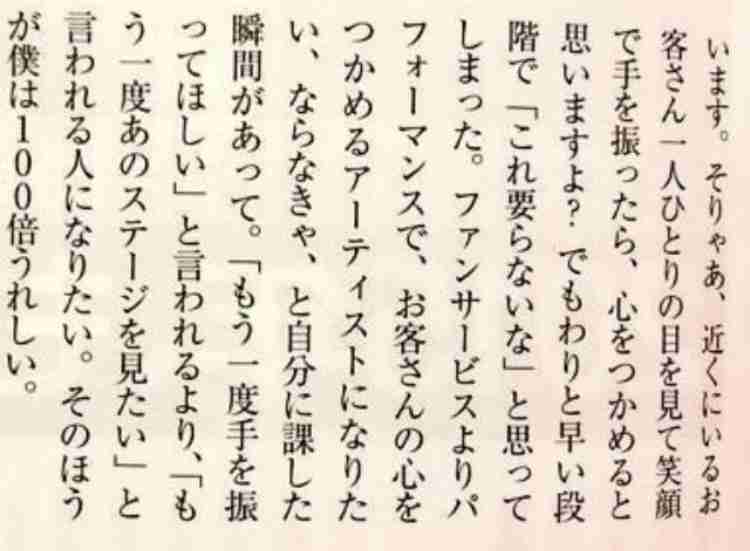 います。そりゃあ、近くにいるお
客さん一人ひとりの目を見て笑顔
で手を振ったら、心をつかめると
思いますよ？でもわりと早い段
階で「これ要らないな」と思って
しまった。ファンサービスよりパ
フォーマンスで、お客さんの心を
つかめるアーティストになりた
い、ならなきゃ、と自分に課した
瞬間があって。「もう一度手を振
ってほしい」と言われるより、「も
う一度あのステージを見たい」と
言われる人になりたい。そのほう
が僕は100倍うれしい。